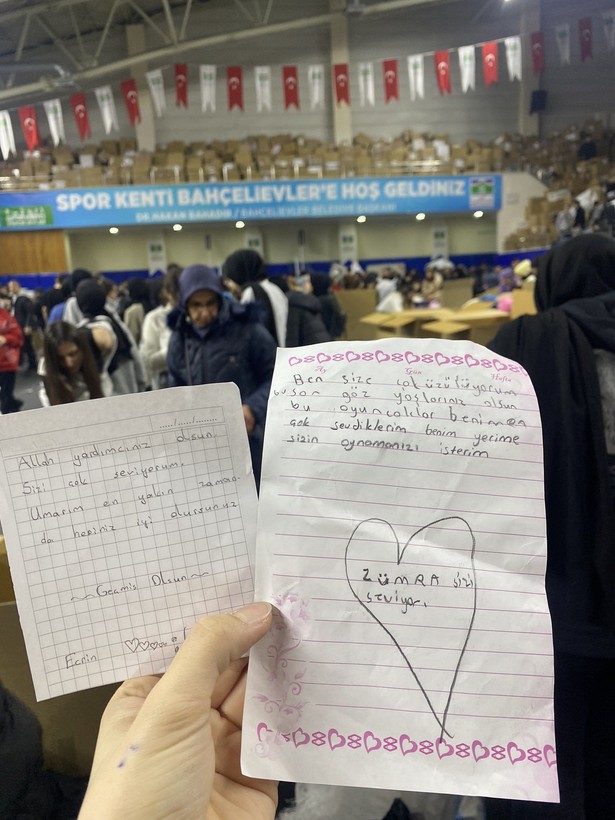 SPOR KENTİ BAHÇELİEVLER'E HOŞ GELDİNİZ
DR. HAKAN BAHADIR / BAHÇELİEVLER BELEDİYE BAŞKANI
...../...../.......
Allah yardımcınız olsun
Sizi çok seviyorum.
Umarım en yakın zaman-
da hepiniz iyi olursunuz
~Geçmiş Olsun~
Ecrin ♡♡♡
Ay Gün Hafta
Ben size çok üzülüyorum
bu son göz yaşlarınız olsun
bu oyuncaklar benim en
çok sevdiklerim benim yerime
sizin oynamanızı isterim
ZÜMRA sizi
seviyor.